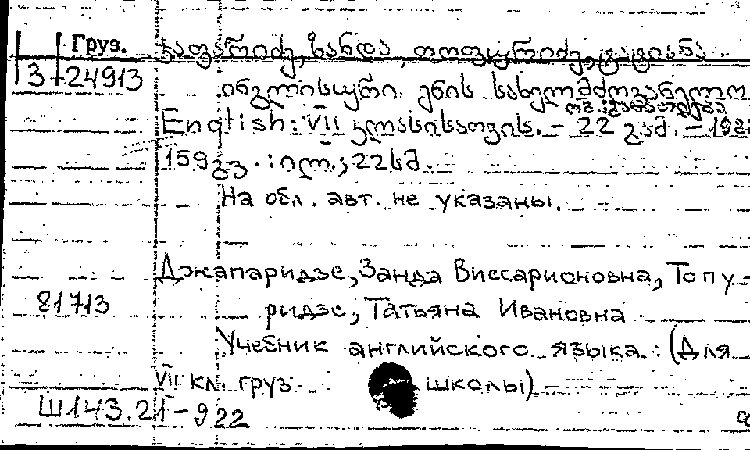 Груз. ჯაფარიძე, ზანდა, თოფურიძე, ტატიანა
3-24913 ინგლისური ენის სახელმძღვანელო
English: VII კლასისათვის. – 22 გამ. –
159 გვ. : ილ.; 22 სმ.
На обл. авт. не указаны.
Джапаридзе, Занда Виссарионовна, Топу-
81713 ридзе, Татьяна Ивановна
Учебник английского языка : (Для
VII кл. груз. школы)
Ш143.21-922